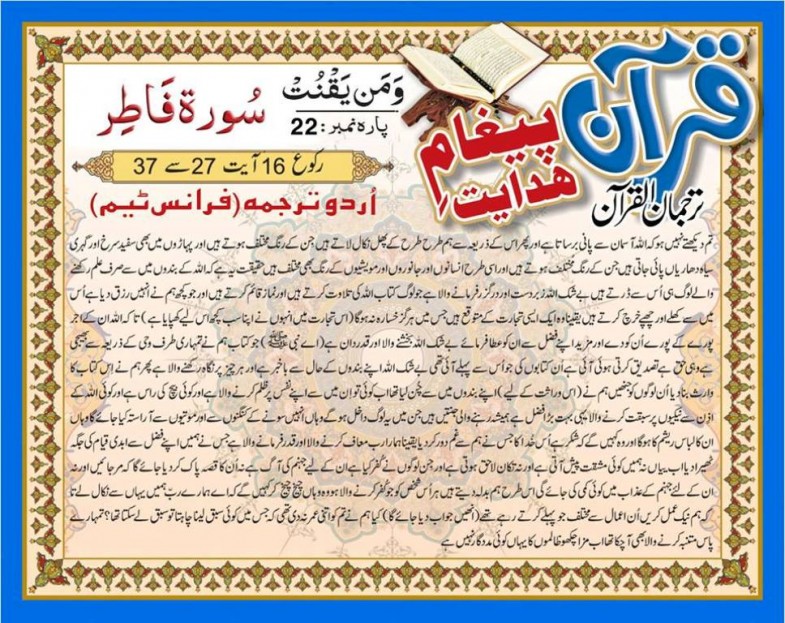 قرآن
پیغامِ
ھدایت
ترجمان القرآن
وَمَن یَقْنُتْ
پارہ نمبر: 22
سُورة فَاطِر
رکوع 16 آیت 27 سے 37
اُردو ترجمہ (فرانس ٹیم)
تم دیکھتے نہیں ہو کہ اللہ آسمان سے پانی برساتا ہے اور پھر اس کے ذریعہ سے ہم طرح طرح کے پھل نکال لاتے ہیں جن کے رنگ مختلف ہوتے ہیں اور پہاڑوں میں بھی سفید سرخ اور گہری
سیاہ دھاریاں پائی جاتی ہیں جن کے رنگ مختلف ہوتے ہیں اور اسی طرح انسانوں اور جانوروں اور مویشیوں کے رنگ بھی مختلف ہیں حقیقت یہ ہے کہ اللہ کے بندوں میں سے صرف علم رکھنے
والے لوگ ہی اُس سے ڈرتے ہیں بے شک اللہ زبردست اور درگزر فرمانے والا ہے جو لوگ کتاب اللہ کی تلاوت کرتے ہیں اور نماز قائم کرتے ہیں اور جو کچھ ہم نے انہیں رزق دیا ہے اُس
میں سے کھلے اور چھپے خرچ کرتے ہیں یقیناً وہ ایک ایسی تجارت کے متوقع ہیں جس میں ہرگز خسارہ نہ ہوگا (اس تجارت میں انہوں نے اپنا سب کچھ اس لیے کھپایا ہے) تاکہ اللہ ان کے اجر
پورے کے پورے اُن کو دے اور مزید اپنے فضل سے ان کو عطا فرمائے بے شک اللہ بخشنے والا اور قدردان ہے (اے نبی ﷺ) جو کتاب ہم نے تمہاری طرف وحی کے ذریعہ سے بھیجی
ہے وہی حق ہے تصدیق کرتی ہوئی آئی ہے اُن کتابوں کی جو اس سے پہلے آئی تھی بے شک اللہ اپنے بندوں کے حال سے باخبر ہے اور ہر چیز پر نگاہ رکھنے والا ہے پھر ہم نے اِس کتاب کا
وارث بنا دیا اُن لوگوں کو جنھیں ہم نے (اس وراثت کے لیے) اپنے بندوں میں سے چُن لیا تھا اب کوئی تو ان میں سے اپنے نفس پر ظلم کرنے والا ہے اور کوئی بیچ کی راس ہے اور کوئی اللہ کے
اذن سے نیکیوں پر سبقت کرنے والا یہی بہت بڑا فضل ہے ہمیشہ رہنے والی جنتیں ہیں جن میں یہ لوگ داخل ہوگے وہاں انہیں سونے کے کنگنوں سے اور موتیوں سے آراستہ کیا جائے گا وہاں
ان کا لباس ریشم کا ہوگا اور وہ کہیں گے کہ شکر ہے اُس خدا کا جس نے ہم سے غم دور کر دیا یقیناً ہمارا رب معاف کرنے والا اور قدر فرمانے والا ہے جس نے ہمیں اپنے فضل سے ابدی قیام کی جگہ
ٹھہرا دیا اب یہاں نہ ہمیں کوئی مشقت پیش آتی ہے اور نہ تکان لاحق ہوتی ہے اور جن لوگوں نے کفر کیا ہے ان کے لیے جہنم کی آگ ہے نہ اُن کا قصہ پاک کر دیا جائے گا کہ مر جائیں اور نہ
ان کے لئے جہنم کے عذاب میں کوئی کمی کی جائے گی اس طرح ہم بدلہ دیتے ہیں ہر اُس شخص کو جو کفر کرنے والا ہو وہ وہاں چیخ چیخ کر کہیں گے کہ اے ہمارے ربّ ہمیں یہاں سے نکال لے تا
کہ ہم نیک عمل کریں اُن اعمال سے مختلف جو پہلے کرتے رہے تھے (انھیں جواب دیا جائے گا) کیا ہم نے تم کو اتنی عمر نہ دی تھی کہ جس میں کوئی سبق لینا چاہتا تو سبق لے سکتا تھا؟ تمہارے
پاس متنبہ کرنے والا بھی آ چکا تھا اب مزا چکھو ظالموں کا یہاں کوئی مددگار نہیں ہے